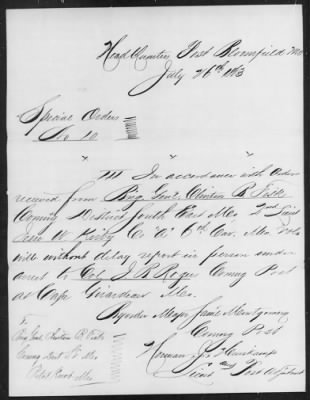 Head Quarters, Post Bloomfield Mo
July 26th 1863
Special Orders
No 20
III In accordance with Orders
received from Brig Genl. Clinton B Fisk
Comdg District South East Mo. 2nd Lieut
W. Co "A" 6th Cav. Mo Vols
will without delay report in person under
arrest to Col J. R. Rogers Comdg Post
at Cape Girardeau Mo.
By order Major James Montgomery
Comdg Post
Herman J.
Lieut and Post Adjutant
To
Brig Genl Clinton B. Fisk
Comdg Dist SE Mo
Pilot Knob Mo